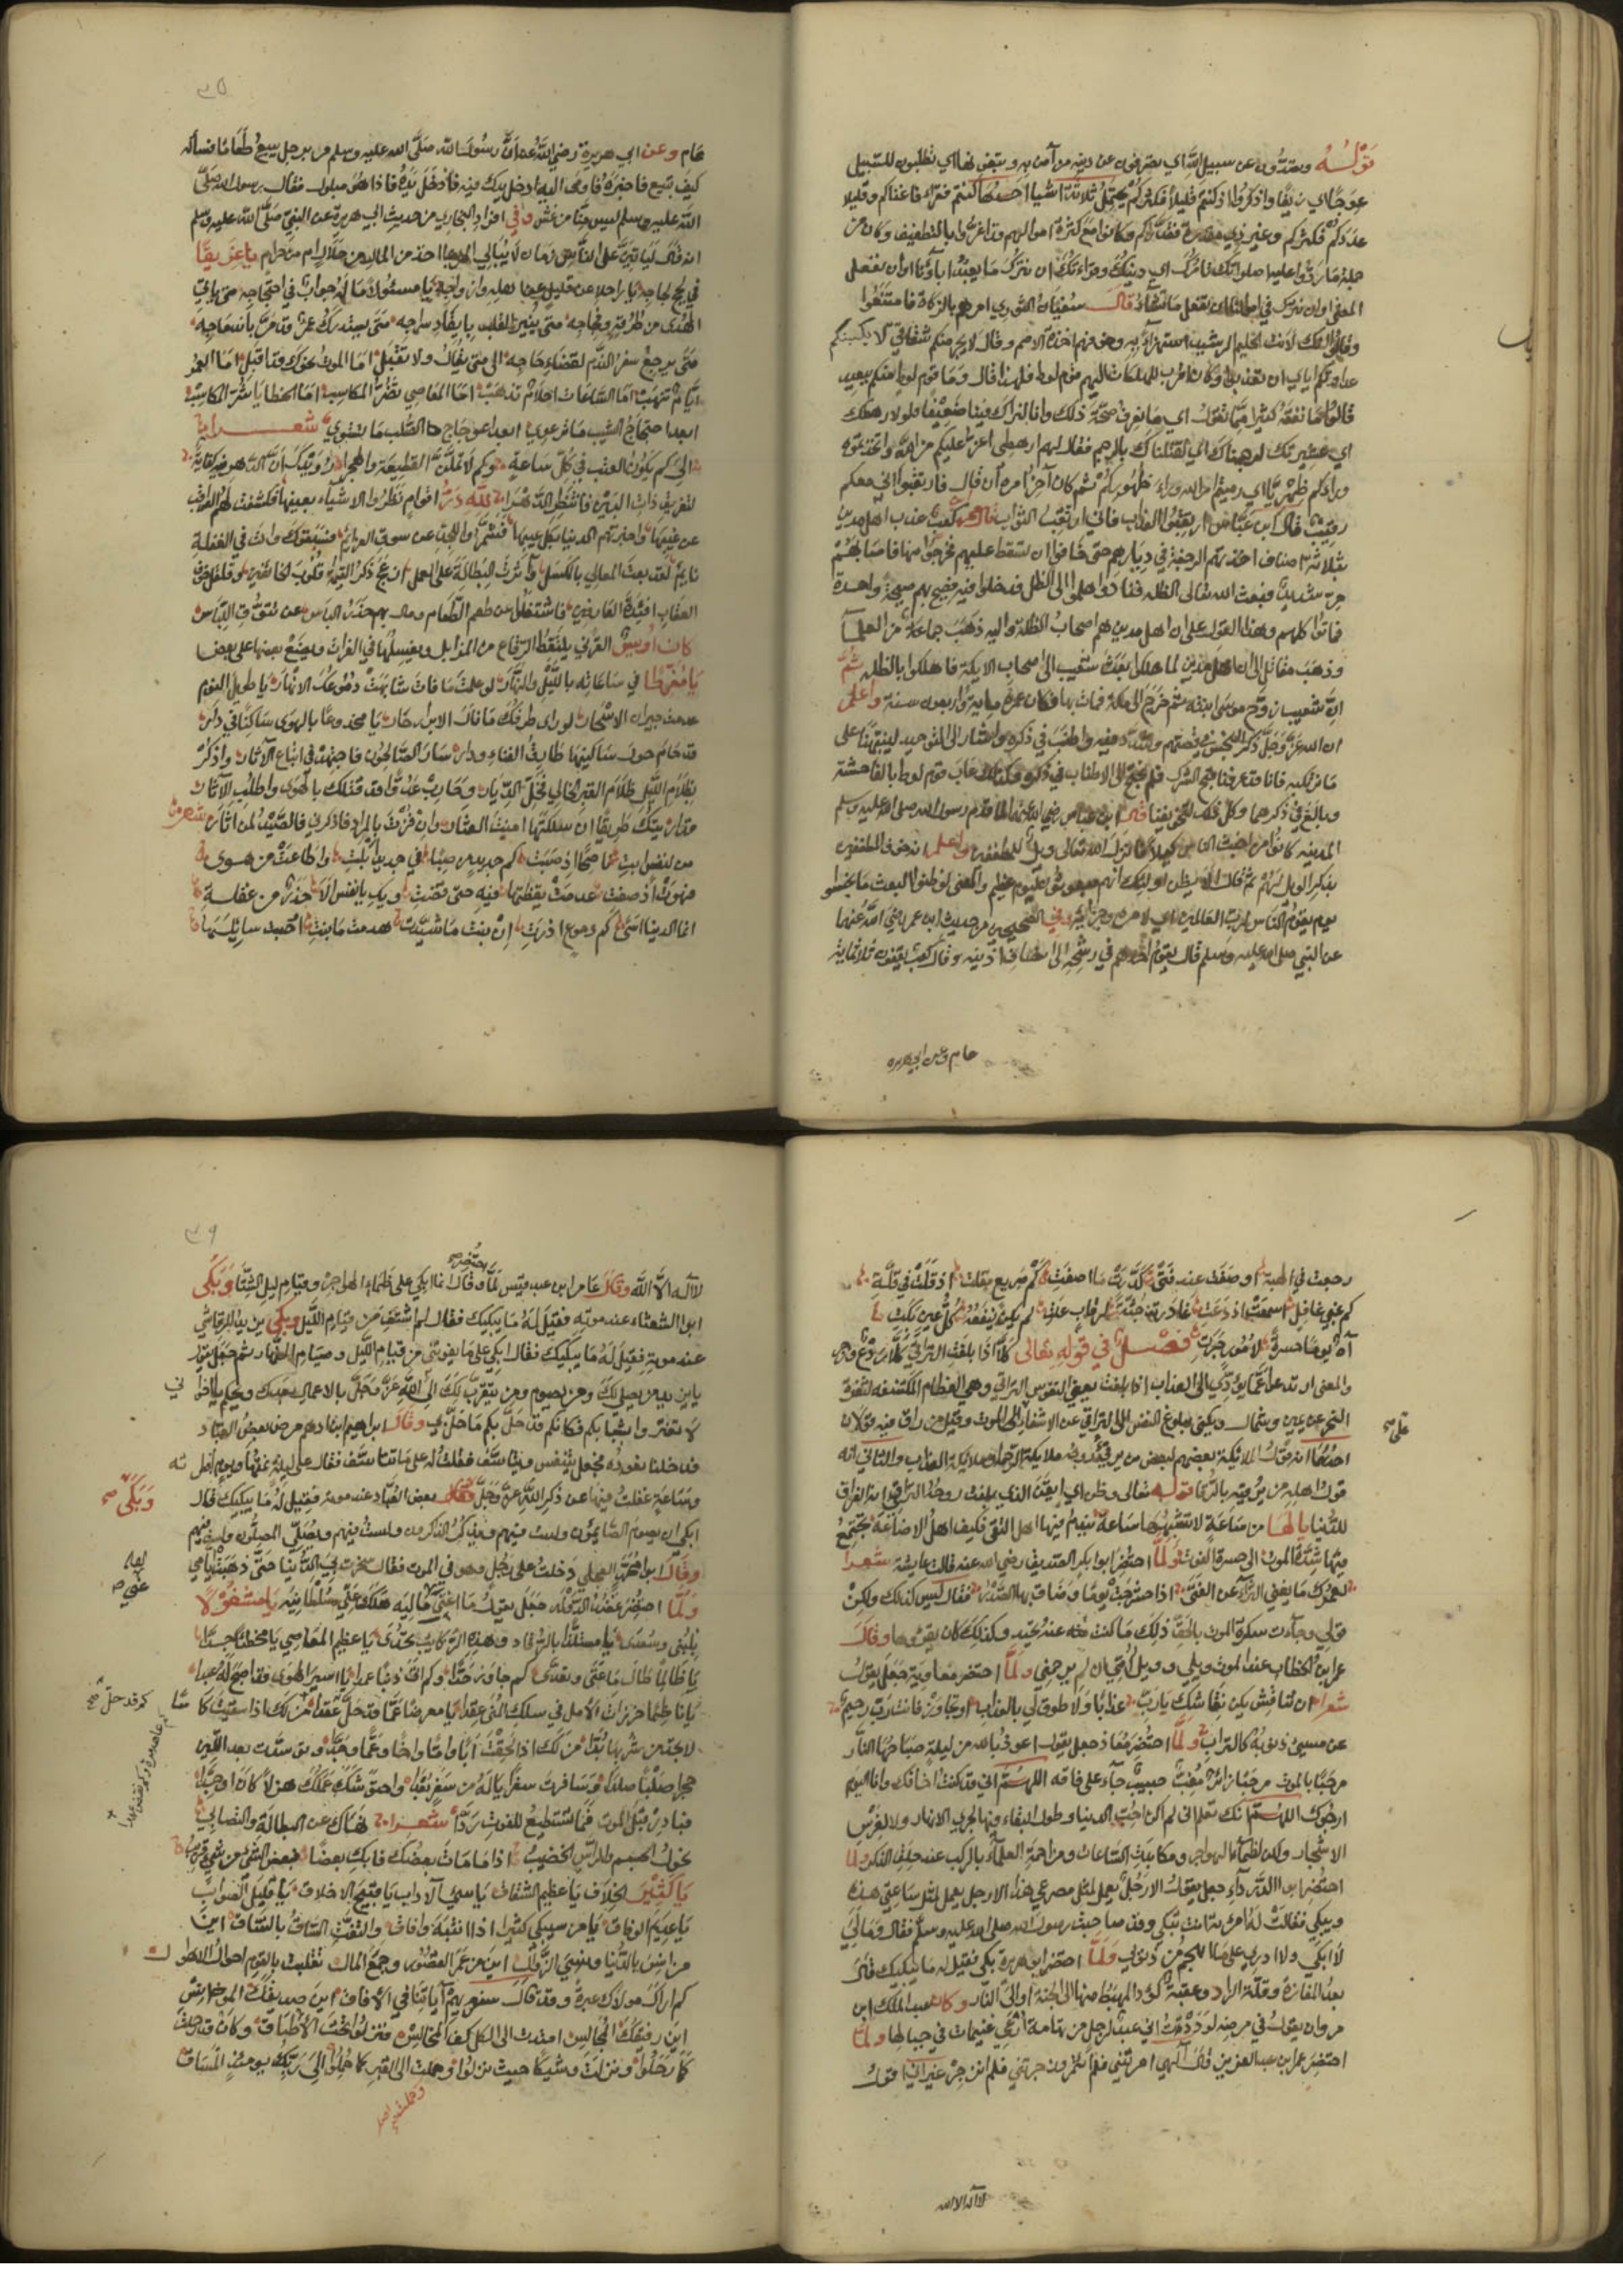 قوله وتصدون عن سبيل الله اي تصرفون عن دينه من آمن به وتبغونها اي تطلبون للسبيل
عوجا اي زيغا واذكروا اذ كنتم قليلا فكثركم يحتمل ثلاثة اشيا احدها كنتم فقراء فاغناكم وقليلا
عددكم فكثركم وغير ذي مقدرة فقدركم وكانوا مع كثرة اموالهم قد اغروا بالتطفيف وكان من
جملة ما ردوا عليه اصلواتك تامرك اي دينك وقراءتك ان نترك ما يعبد اباؤنا او ان نفعل
المعنى او ان نترك في اموالنا ان نفعل ما نشاء قال سفيان الثوري امرهم بالزكاة فامتنعوا
وقالوا انك لانت الحليم الرشيد استهزاء به وخوفهم اخذة الامم وقال لا يجرمنكم شقاقي لا يكسبنكم
عداوتكم اياي ان تعذبوا وكان اقرب المهلكات اليهم قوم لوط فلهذا قال وما قوم لوط منكم ببعيد
قالوا ما نفقه كثيرا مما تقول اي ما نعرف صحة ذلك وانا لنراك فينا ضعيفا ولولا رهطك
اي عشيرتك لرجمناك اي لقتلناك بالرجم فقال لهم ارهطي اعز عليكم من الله واتخذتموه
وراءكم ظهريا اي رميتم امر الله وراء ظهوركم ثم كان آخر امره ان قال فارتقبوا اني معكم
رقيب قال ابن عباس ارتقبوا العذاب فاني ارتقب الثواب قال محمد بن كعب عذب اهل مدين
بثلاثة اصناف اخذتهم الرجفة في ديارهم حتى خافوا ان تسقط عليهم فخرجوا منها فاصابهم
حر شديد فبعث الله تعالى الظلة فتنادوا هلموا الى الظل فدخلوا فيه فصيح بهم صيحة واحدة
فماتوا كلهم وهذا القول على ان اهل مدين هم اصحاب الظلة واليه ذهب جماعة من العلماء
وذهب مقاتل الى ان اهل مدين لما هلكوا بعث شعيب الى اصحاب الايكة فاهلكوا بالظلة ثم
ان شعيبا زوج موسى ابنته ثم خرج الى مكة فمات بها وكان عمره ماية واربعون سنة واعلم
ان الله عز وجل ذكر البخس في قصتهم وشدد فيه واطنب في ذكره واشار الى التوحيد لينبهنا على
ما نرتكبه فانا قد عرفنا قبح الشرك فلم يحتج الى الاطناب في ذكره وكذلك عاب قوم لوط بالفاحشة
وبالغ في ذكرها وكل ذلك لتخويفنا قال ابن عباس رضي الله عنهما لما قدم رسول الله صلى الله عليه وسلم
المدينة كانوا من اخبث الناس كيلا فانزل الله تعالى ويل للمطففين واعلم انه خوف المطففين
بذكر الويل لهم ثم قال الا يظن اولئك انهم مبعوثون ليوم عظيم والمعنى لو ظنوا البعث ما بخسوا
يوم يقوم الناس لرب العالمين اي لامره وجزائه وفي الصحيحين من حديث ابن عمر رضي الله عنهما
عن النبي صلى الله عليه وسلم قال يقوم احدهم في رشحه الى انصاف اذنيه وقال كعب يقفون ثلاثماية
عام وعن ابي هريرة
٣٥
عام وعن ابي هريرة رضي الله عنه ان رسول الله صلى الله عليه وسلم مر برجل يبيع طعاما فساله
كيف تبيع فاخبره فاوحى اليه ادخل يدك فيه فادخل يده فاذا هو مبلول فقال رسول الله صلى
الله عليه وسلم ليس منا من غش وفي افراد البخاري من حديث ابي هريرة عن النبي صلى الله عليه وسلم
انه قال لياتين على الناس زمان لا يبالي المرء بما اخذ من المال من حلال ام من حرام يا غريقا
في لجج لجاجه يا راحلا عن قليل عن اهله وازواجه يا مسئولا ما له جواب في احتجاجه متى ياتي
الهدى من طرقه وفجاجه متى ينير القلب بايقاد سراجه متى يستدرك عمر قد مر بانسهاجه
متى يرجع سفر الندم لقضاء حاجه الى متى يقال ولا تقبل اما الموت نحوك قد اقبل اما العمر
ايام تنهب اما الساعات احلام تذهب اما المعاصي تضر المكاسب اما الخطايا شر المكاسب
ابعد احتجاج الشيب ما فرعوي ابعد اعوجاج هذا الصلب ما يستوي شعرا
الى كم يكون العتب في كل ساعة وكم لا تملين القطيعة والهجرا رويدك ان الدهر فيه كفاية
لتفريق ذات البين فانتظر الدهرا لله در اقوام نظروا الاشياء بعينها فكشفت لهم العواقب
عن غيبها واخبرتهم الدنيا بكل عيبها فشمروا للجد عن سوق العزائم فسبقوك وانت في الغفلة
نايم لقد بعت المعالي بالكسل وآثرت البطالة على العمل ازعج ذكر القيمة قلوب الخائفين وقلقل خوف
العقاب افئدة العارفين فاشتغلوا عن طعم الطعام ومال بهم حذر الباس عن تنوق في اللباس
كان اويس القرني يلتقط الرقاع من المزابل ويغسلها في الفرات ويضع بعضها على بعض
يا مفرطا في ساعاته بالليل والنهار لو علمت ما فات شابهت دموعك الانهار يا طويل النوم
عدمت خيرات الاسحار لو راى طرفك ما نال الابرار حار يا مخدوعا بالهوى ساكنا في دار
قد حام حول ساكنيها طارق الفناء ودار سار الصالحون فاجتهد في اتباع الآثار واذكر
بظلام الليل ظلام القبر الخالي فخل الديار وحارب عدوا قد قتلك بالهوى واطلب الآثار
فقد اريتك طريقا ان سلكتها امنت العثار وان فزت بالمراد فاذكرني فالصيد لمن اثار شعر
من لنفس ابت نصحا اذ صبت كم جديد من صبا في جديد ابلت واطاعت من هوى
فهوت اذ صفت عدمت يقظتها فيه حتى قضت ويك يا نفس الا حذر من غفلة
انما الدنيا اسى كم دموع اذرت ان بنت ما شيدت هدمت ما بنت
رجعت في الهبة او صفت عند فتى كدرت ما اصفت كم صريع بقلت اذ قلت في قلة
كم عني غافل اسمعت اذ دعت غادرته جثة لم يكن ينفعه كل عين بكت
آه يوما حسرة لامور جرت فصل في قوله تعالى كلا اذا بلغت التراقي كلا ردع وزجر
والمعنى ارتدعوا عما يؤدي الى العذاب اذا بلغت يعني النفوس التراقي وهي العظام المكتنفة لثغرة
النحر عن يمين وشمال ويكنى ببلوغ النفس الى التراقي عن الاشفاء على الموت وقيل من راق فيه قولان
احدهما انه قول الملائكة بعضهم لبعض من يرقى بروحه ملايكة الرحمة او ملايكة العذاب والثاني انه
قول اهله من يرقيه بالرقا قوله تعالى وظن اي ايقن الذي بلغت روحه التراقي انه الفراق
للدنيا يا لها من ساعة لا تشبهها ساعة يندم فيها اهل التقى فكيف اهل الاضاعة يجتمع
فيها شدة الموت الى حسرة الفوت ولما احتضر ابو بكر الصديق رضي الله عنه قالت عايشة شعرا
لعمرك ما يغني الثراء عن الفتى اذا حشرجت يوما وضاق بها الصدر فقال ليس كذلك ولكن
قولي وجاءت سكرة الموت بالحق ذلك ما كنت منه تحيد وكذلك كان يقرؤها وقال
عمر ابن الخطاب عند الموت ويلي وويل امي ان لم يرحمني ولما احتضر معاوية جعل يقول
شعرا ان تناقش يكن نقاشك يا رب عذابا ولا طوق لي بالعذاب او تجاوز فانت رب رحيم
عن مسيئ ذنوبه كالتراب ولما احتضر معاذ جعل يقول اعوذ بالله من ليلة صباحها النار
مرحبا بالموت مرحبا زائر مغب حبيب جاء على فاقة اللهم اني قد كنت اخافك وانا اليوم
ارجوك اللهم انك تعلم اني لم اكن احب الدنيا وطول البقاء فيها لجري الانهار ولا لغرس
الاشجار ولكن لظماء الهواجر ومكابدة الساعات ومزاحمة العلماء بالركب عند حلق الذكر ولما
احتضر ابو الدرداء جعل يقول الا رجل يعمل لمثل مصرعي هذا الا رجل يعمل لمثل ساعتي هذه
ويبكي فقالت له امراته انت تبكي وقد صاحبت رسول الله صلى الله عليه وسلم فقال ومالي
لا ابكي ولا ادري على ما اهجم من ذنوبي ولما احتضر ابو هريرة بكى فقيل له ما يبكيك قال
بعد المفازة وقلة الزاد وعقبة كؤد المهبط منها الى الجنة او الى النار وكان عبد الملك ابن
مروان يقول في مرضه لوددت اني عبد لرجل من تهامة ارعى غنيمات في جبالها ولما
احتضر عمر ابن عبد العزيز قال الهي امرتني فلم ائتمر وزجرتني فلم انزجر غير اني اقول
لا اله الا الله
٣٦
لا اله الا الله وقال عامر ابن عبد قيس لما وقال انما ابكي على ظماء الهواجر وقيام ليل الشتا وبكى
يحتضر صح
ابو الشعثاء عند موته فقيل له ما يبكيك فقال لم اشتف من قيام الليل وبكى يزيد الرقاشي
عند موته فقيل له ما يبكيك فقال ابكي على ما يفوتني من قيام الليل وصيام النهار ثم جعل يقول
يا يزيد من يصلي لك ومن يصوم ومن يتقرب لك الى الله عز وجل بالاعمال بعدك ويحكم يا اخواني
لا تغتروا بشبابكم فكانكم قد حل بكم ما حل بي وقال ابراهيم ابن ادهم مرض بعض العباد
فدخلنا نعوده فجعل يتنفس ويتاسف فقلت له على ماذا تتاسف فقال على ليلة نمتها ويوم افطرته
وساعة غفلت فيها عن ذكر الله عز وجل وبكى بعض العباد عند موته فقيل له ما يبكيك فقال
وبكى صح
ابكي ان يصوم الصايمون ولست فيهم ويذكر الذاكرون ولست فيهم ويصلي المصلون ولست فيهم
وقال ابو محمد العجلي دخلت على رجل وهو في الموت فقال سخرت بي الدنيا حتى ذهبت ايامي
ولما احتضر عضد الدولة جعل يقول ما اغنى عني ماليه هلك عني سلطانيه يا مشغولا
بلبنى وسعدى يا مستلذا بالرقاد وهذه الركايب تحدى يا عظيم المعاصي يا مخطئا جدا
يا ظالما طال ما عتى وتعدى كم جاوز حدا وكم اتى ذنبا عمدا يا اسير الهوى فقد اصبح له عبدا
يا ناظما خرزات الامل في سلك المنى عقدا يا معرضا عما قد حل عقدا من لك اذا سقيت كاسا
كم قد حل صح
لا تجد من شربها بدا من لك اذا لحقت ابا واما واخا وعما وجدا وتوسدت بعد اللين
حجرا صلبا صلدا وسافرت سفرا يا له من سفر بعدا واحق شك عملك هزلا كان او جدا
فبادر قبل الموت فما تستطيع للفوت ردا شعرا نهاك عن البطالة والتصابي
نحول الجسم والراس الخضيب اذا ما مات بعضك فابك بعضا فبعض الشئ من شئ قريب
يا كثير الخلاف يا عظيم الشقاق يا سيئ الآداب يا قبيح الاخلاق يا قليل الصواب
يا عديم الوفاق يا من سيبكي كثيرا اذا انتبه وافاق والتفت الساق بالساق اين
من انس بالدنيا ونسي الزوال اين من عمر القصور وجمع المال تقلبت بالقوم احوال
كم اراك مولاك عبرة وقد قال سنريهم آياتنا في الآفاق اين صديقك الموانس
اين رفيقك المجالس امتدت الى الكل كف المخالس فنزلوا تحت الاطباق وكان قد رحلت
كما رحلوا ونزلت وشيكا حيث نزلوا وحملت الى القبر كما حملوا الى ربك يومئذ المساق